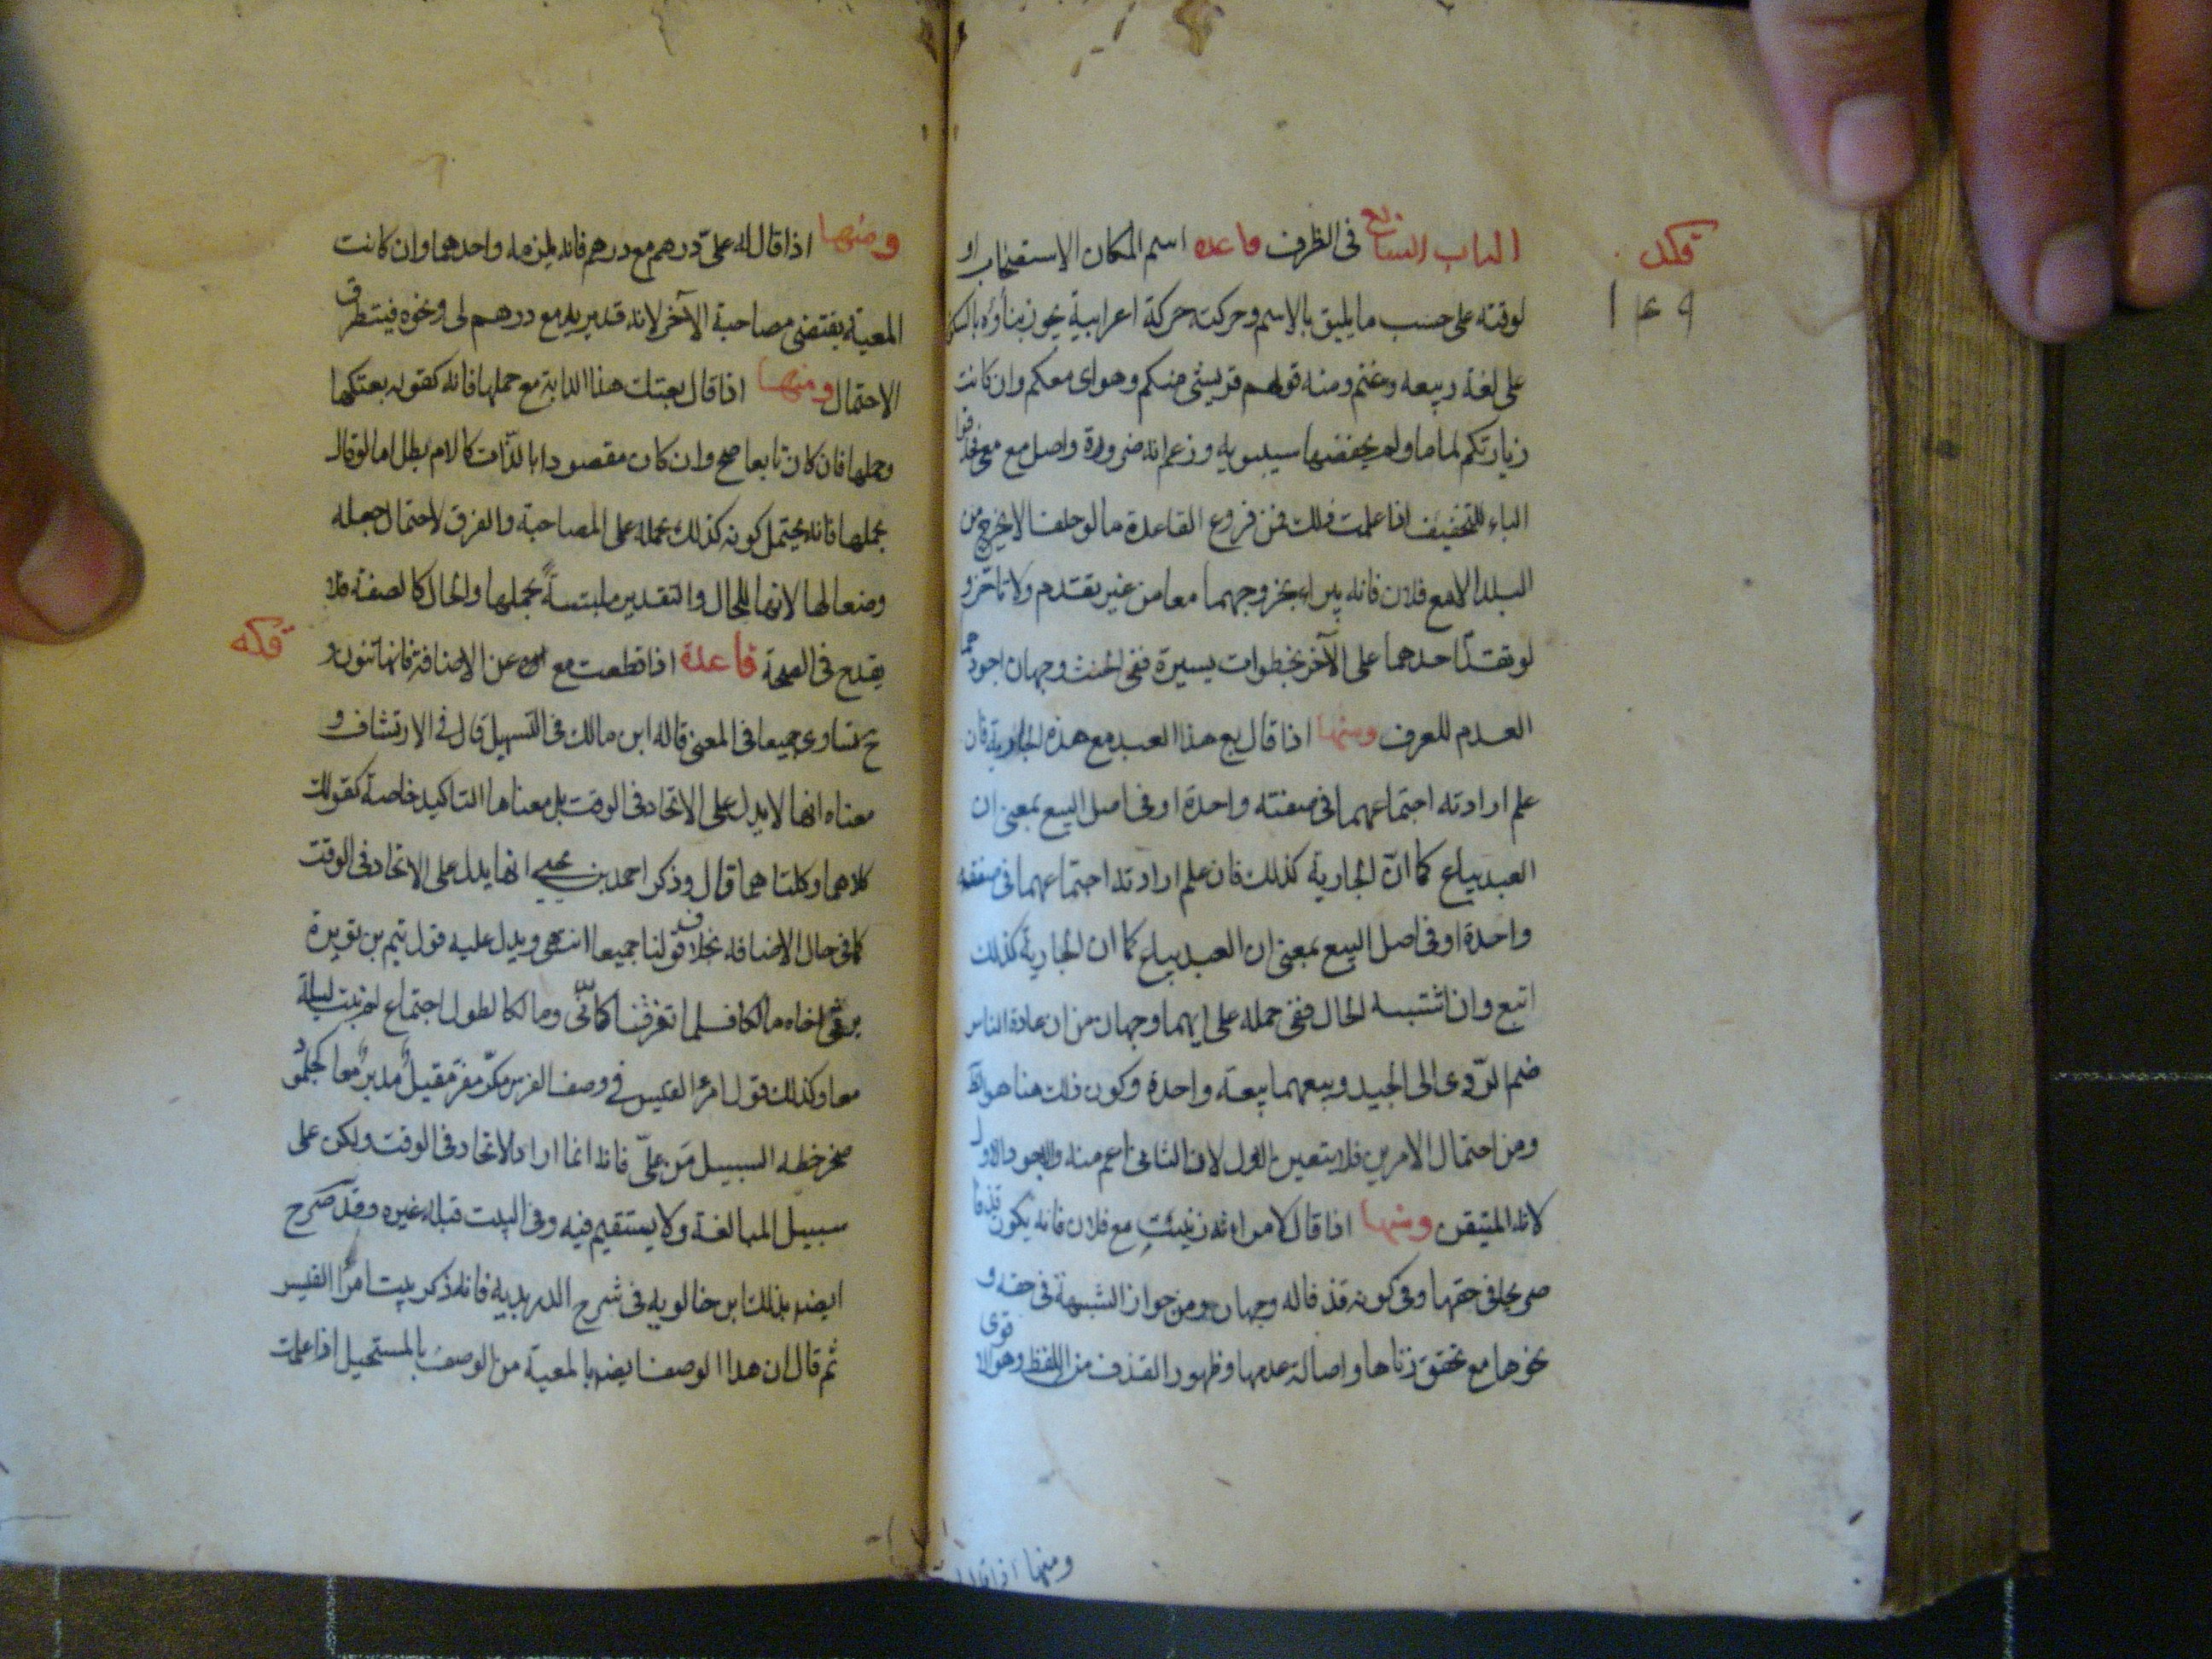 الباب السابع فى الظرف قاعده اسم المكان الاستصحاب او
قكد
١٤٩
لوقته على حسب ما يليق بالاسم وحركته حركة اعرابية يجوز بناؤه بالسكون
على لغة ربيعه وغنم ومنه قولهم فريشى منكم وهواى معكم وان كانت
زيارتكم لماما ولم يحفظها سيبويه وزعم انه ضرورة واصل مع معى فحذفوا
الياء للتخفيف اذا علمت ذلك فمن فروع القاعدة ما لو حلف لا يخرج من
البلد الا مع فلان فانه يبراء بخروجهما معا من غير تقدم ولا تاخر و
لو تقدّم احدهما على الآخر بخطوات يسيرة ففى الحنث وجهان اجودهما
العدم للعرف ومنها اذا قال بع هذا العبد مع هذه الجارية فان
علم ارادته اجتماعهما فى صفقته واحدة او فى اصل البيع بمعنى ان
العبد يباع كما انّ الجارية كذلك فان علم ارادته اجتماعهما فى صفقه
واحدة او فى اصل البيع بمعنى ان العبد يباع كما ان الجارية كذلك
اتبع وان اشتبه الحال ففى حمله على ايهما وجهان من ان عادة الناس
ضم الرّدى الى الجيد وبيعهما بيعة واحدة وكون ذلك هنا هو
ومن احتمال الامرين فلا يتعين الاول لان الثانى اعم منه والاجود الاول
لانه المتيقن ومنها اذا قال لامراءته زنيتِ مع فلان فانه يكون قذفا
صريحا فى حقها وفى كونه قذفا له وجهان ومن جواز الشبهة فى حقه و
نحوها مع تحقق زناها واصالة عدمها وظهور القذف من اللفظ وهو الاقوى
ومنها اذا قال
ومنها اذا قال له علىّ درهم مع درهم فانه يلزمه واحد هما وان كانت
المعية يقتضى مصاحبة الآخر لانه قد يريد مع درهم لى ونحوه فيتطرق
الاحتمال ومنها اذا قال بعتك هذا الدابة مع حملها فانه كقوله بعتكها
وحملها فان كان تابعا صح وان كان مقصودا بالذّات كالام بطل اما لو قال
بحملها فانه يحتمل كونه كذلك بحمله على المصاحبة والفرق لاحتمال جعله
وضعا لها لانها للحال والتقدير ملبتسةً بحملها والحال كالصفة فلا
يقدح فى الصحة قاعدة اذا قطعت مع عن الاضافة فانها تنون و
قكه
ح تساوى جميعا فى المعنى قاله ابن مالك فى التسهيل قال فى الارتشاف و
معناه انها لا يدل على الاتحاد فى الوقت بل معناها التاكيد خاصة كقولك
كلاهما وكلتاهما قال وذكر احمد بن يحيى انها يدل على الاتحاد فى الوقت
كما فى حال الاضافه بخلاف قولنا جميعا انتهى ويدل عليه قول تيم بن نويرة
يرثى اخاه مالكا فلما تفرقنا كانّى ومالكا لطول اجتماع لم نبت ليلة
معا وكذلك قول امرا القيس فى وصف الفرس مكرّ مفرّ مقبلٌ مدبرٌ معا كجلمود
صخر حطه السيل مَن علّ فانه انما اراد الاتحاد فى الوقت ولكن على
سبيل المبالغة ولا يستقيم فيه وفى البيت قبله غيره وقد صرح
ايضه بذلك ابن خالويه فى شرح الدريدية فانه ذكر بيت امرا القيس
ثم قال ان هذا الوصف ايضه بالمعية من الوصف بالمستحيل اذا علمت